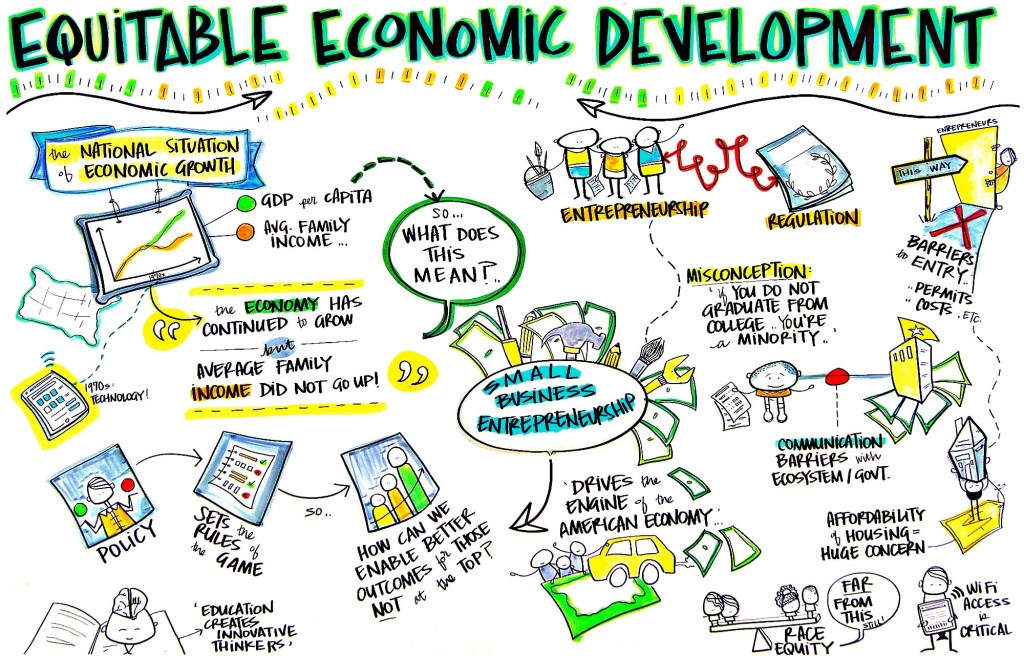 EQUITABLE ECONOMIC DEVELOPMENT
the NATIONAL SITUATION
of ECONOMIC GROWTH
GDP per CAPITA
AVG. FAMILY
INCOME ...
1970s
the ECONOMY HAS
CONTINUED to GROW
but
AVERAGE FAMILY
INCOME DID NOT GO UP!
1970s:
TECHNOLOGY!
SO...
WHAT DOES
THIS
MEAN?..
SMALL
BUSINESS
ENTREPRENEURSHIP
POLICY
SETS the
RULES of
the GAME
SO..
HOW CAN WE
ENABLE BETTER
OUTCOMES for THOSE
NOT at the TOP?
'EDUCATION
CREATES
INNOVATIVE
THINKERS,
'DRIVES the
ENGINE of the
AMERICAN ECONOMY...
ENTREPRENEURSHIP
REGULATION
ENTREPRENEURS
THIS WAY
BARRIERS
to ENTRY
.. PERMITS
COSTS . ETC.
MISCONCEPTION:
'if YOU DO NOT
GRADUATE FROM
COLLEGE .. YOU'RE
a MINORITY..
COMMUNICATION
BARRIERS with
ECOSYSTEM/GOVT.
AFFORDABILITY
of HOUSING =
HUGE CONCERN
RACE
EQUITY
FAR
FROM
THIS
STILL!
WIFI
ACCESS
is
CRITICAL